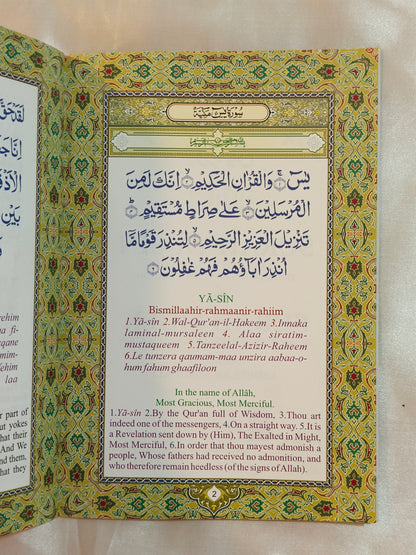 سُورَةُ يٰسٓ مَكِّيَّةٌ
يٰسٓ ۚ ۝١ وَالْقُرْاٰنِ الْحَكِيْمِ ۝٢ اِنَّكَ لَمِنَ
الْمُرْسَلِيْنَ ۝٣ عَلٰى صِرَاطٍ مُّسْتَقِيْمٍ ۝٤
تَنْزِيْلَ الْعَزِيْزِ الرَّحِيْمِ ۝٥ لِتُنْذِرَ قَوْمًا مَّاۤ
اُنْذِرَ اٰبَآؤُهُمْ فَهُمْ غٰفِلُوْنَ ۝٦
YÃ-SÎN
Bismillaahir-rahmaanir-rahiim
1.Yâ-sîn 2.Wal-Qur'an-il-Hakeem 3.Innaka
laminal-mursaleen 4. Alaa siratim-
mustaqueem 5.Tanzeelal-Azizir-Raheem
6.Le tunzera qaumam-maa unzira aabaa-o-
hum fahum ghaafiloon
In the name of Allâh,
Most Gracious, Most Merciful.
1.Yâ-sîn 2.By the Qur'an full of Wisdom, 3.Thou art
indeed one of the messengers, 4.On a straight way. 5.It is
a Revelation sent down by (Him), The Exalted in Might,
Most Merciful, 6.In order that thou mayest admonish a
people, Whose fathers had received no admonition, and
who therefore remain heedless (of the signs of Allah).
2